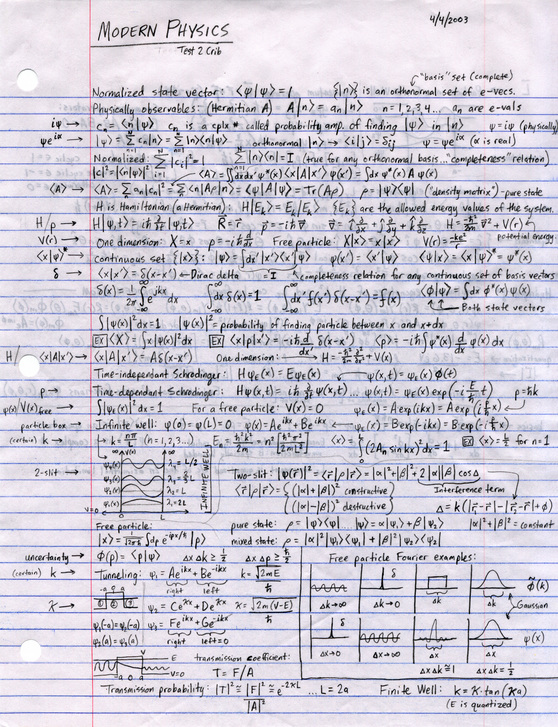 4/4/2003
MODERN PHYSICS
Test 2 Crib
"basis" set (complete)
Normalized state vector: ⟨ψ|ψ⟩ = 1   {|n⟩} is an orthonormal set of e-vecs.
Physically observables: (Hermitian A) A|n⟩ = aₙ|n⟩   n = 1,2,3,4...   aₙ are e-vals
iψ → cₙ = ⟨n|ψ⟩   cₙ is a cplx # called probability amp. of finding |ψ⟩ in |n⟩   ψ = iψ (physically)
ψe^{iα} → |ψ⟩ = Σ cₙ|n⟩ = Σ |n⟩⟨n|ψ⟩   orthonormal |n⟩ → ⟨i|j⟩ = δij   ψ = ψe^{iα} (α is real)
Normalized: Σ|cᵢ|² = 1   Σ|n⟩⟨n| = I (true for any orthonormal basis..."completeness" relation)
|c|² = |⟨n|ψ⟩|²   ⟨A⟩ = ∫∫dx dx' ψ*(x) ⟨x|A|x'⟩ ψ(x') = ∫dx ψ*(x) A ψ(x)
⟨A⟩ → ⟨A⟩ = Σ aₙ|cₙ|² = Σ⟨n|Aρ|n⟩ = ⟨ψ|A|ψ⟩ = Tr(Aρ)   ρ = |ψ⟩⟨ψ| ("density matrix") - pure state
H is Hamiltonian (a Hermitian): H|Eₖ⟩ = Eₖ|Eₖ⟩   {Eₖ} are the allowed energy values of the system.
H/ρ → H|ψ,t⟩ = iħ ∂/∂t |ψ,t⟩   R⃗ = r⃗   p⃗ = -iħ∇⃗   ∇⃗ = î ∂/∂x + ĵ ∂/∂y + k̂ ∂/∂z   H = -ħ²/2m ∇² + V(r)
potential energy
V(r) → One dimension: X = x   p = -iħ d/dx   Free particle: X|x⟩ = x|x⟩   V(r) = -ke²/r
⟨x|ψ⟩* → continuous set {|x⟩}: |ψ⟩ = ∫dx' |x'⟩⟨x'|ψ⟩   ψ(x') = ⟨x'|ψ⟩   ⟨ψ|x⟩ = ⟨x|ψ⟩* = ψ*(x)
δ → ⟨x|x'⟩ = δ(x-x') ← Dirac delta   = I   completeness relation for any continuous set of basis vectors
δ(x) = 1/2π ∫ e^{jkx} dx   ∫dx δ(x) = 1   ∫dx' f(x') δ(x-x') = f(x)   ⟨φ|ψ⟩ = ∫dx φ*(x) ψ(x)
Both state vectors
∫|ψ(x)|² dx = 1   |ψ(x)|² = probability of finding particle between x and x+dx
EX ⟨X⟩ = ∫x|ψ(x)|² dx   EX ⟨x|p|x'⟩ = -iħ d/dx δ(x-x')   ⟨p⟩ = -iħ∫ψ*(x) d/dx ψ(x) dx
H/⟨x|A|x'⟩ → ⟨x|A|x'⟩ = Aδ(x-x')   One dimension: → H = -ħ²/2m d²/dx² + V(x)
Time-independent Schrodinger: Hψ_E(x) = Eψ_E(x)   ψ(x,t) = ψ_E(x) φ(t)
p → Time-dependant Schrodinger: Hψ(x,t) = iħ ∂/∂t ψ(x,t) ... ψ(x,t) = ψ_E(x) exp(-i E/ħ t)   p = ħk
ψ(x)/V(x)free → ∫|ψ_E(x)|² dx = 1   For a free particle: V(x) = 0   ψ_E(x) = A exp(ikx) = A exp(i p/ħ x)
particle box → Infinite well: ψ(0) = ψ(L) = 0   ψ(x) = Ae^{ikx} + Be^{-ikx}   ψ_E(x) = B exp(-ikx) = B exp(-i p/ħ x)
(certain) k → k = nπ/L (n = 1,2,3...)   Eₙ = ħ²k²/2m = n² [ħ²π²/2mL²]   ⟨x⟩ = ∫x(2Aₙ sin kx)² dx = 1   EX ⟨x⟩ = L/2 for n = 1
V(x)
ψ₄(x) λ₄ = L/2
ψ₃(x)
ψ₂(x) λ₂ = L
ψ₁(x) λ₁ = 2L
V=0
INFINITE WELL
2-slit → Two-slit: |ψ(r⃗)|² = ⟨r⃗|ρ|r⃗⟩ = |α|² + |β|² + 2|α||β| cos Δ
⟨r⃗|ρ|r⃗⟩ = { (|α|+|β|)² constructive
Interference term
(|α|-|β|)² destructive   Δ = k(|r⃗-r⃗₁| - |r⃗-r⃗₂| + φ)
Free particle:   pure state: ρ = |ψ⟩⟨ψ|   |ψ⟩ = α|ψ₁⟩ + β|ψ₂⟩   |α|² + |β|² = constant
|x⟩ = 1/√2πħ ∫dp e^{-ipx/ħ} |p⟩   mixed state: ρ = |α|²|ψ₁⟩⟨ψ₁| + |β|²|ψ₂⟩⟨ψ₂|
uncertainty → Φ(p) = ⟨p|ψ⟩   Δx Δk ≥ 1/2   Δx Δp ≥ ħ/2
Free particle Fourier examples:
(certain) k → Tunneling: ψ₁ = Ae^{ikx} + Be^{-ikx}   k = √2mE / ħ
right   left
-a 0 a
① ② ③
K → ψ₂ = Ce^{Kx} + De^{-Kx}   K = √2m(V-E) / ħ
ψ₁(-a) = ψ₂(-a)   ψ₃ = Fe^{ikx} + Ge^{-ikx}
ψ₂(a) = ψ₃(a)   right   left = 0
δ
φ̃(k)
Δk→∞   Δk→0   Δk   Δk
Gaussian
δ
ψ(x)
Δx→0   Δx→∞   Δx   Δx
ΔxΔk ≅ 1   ΔxΔk = 1/2
V
E
V=0
transmission coefficient:
T = F/A
Transmission probability: |T|² = |F|²/|A|² ≅ e^{-2KL} ... L = 2a   Finite Well: k = K·tan(Ka)
(E is quantized)